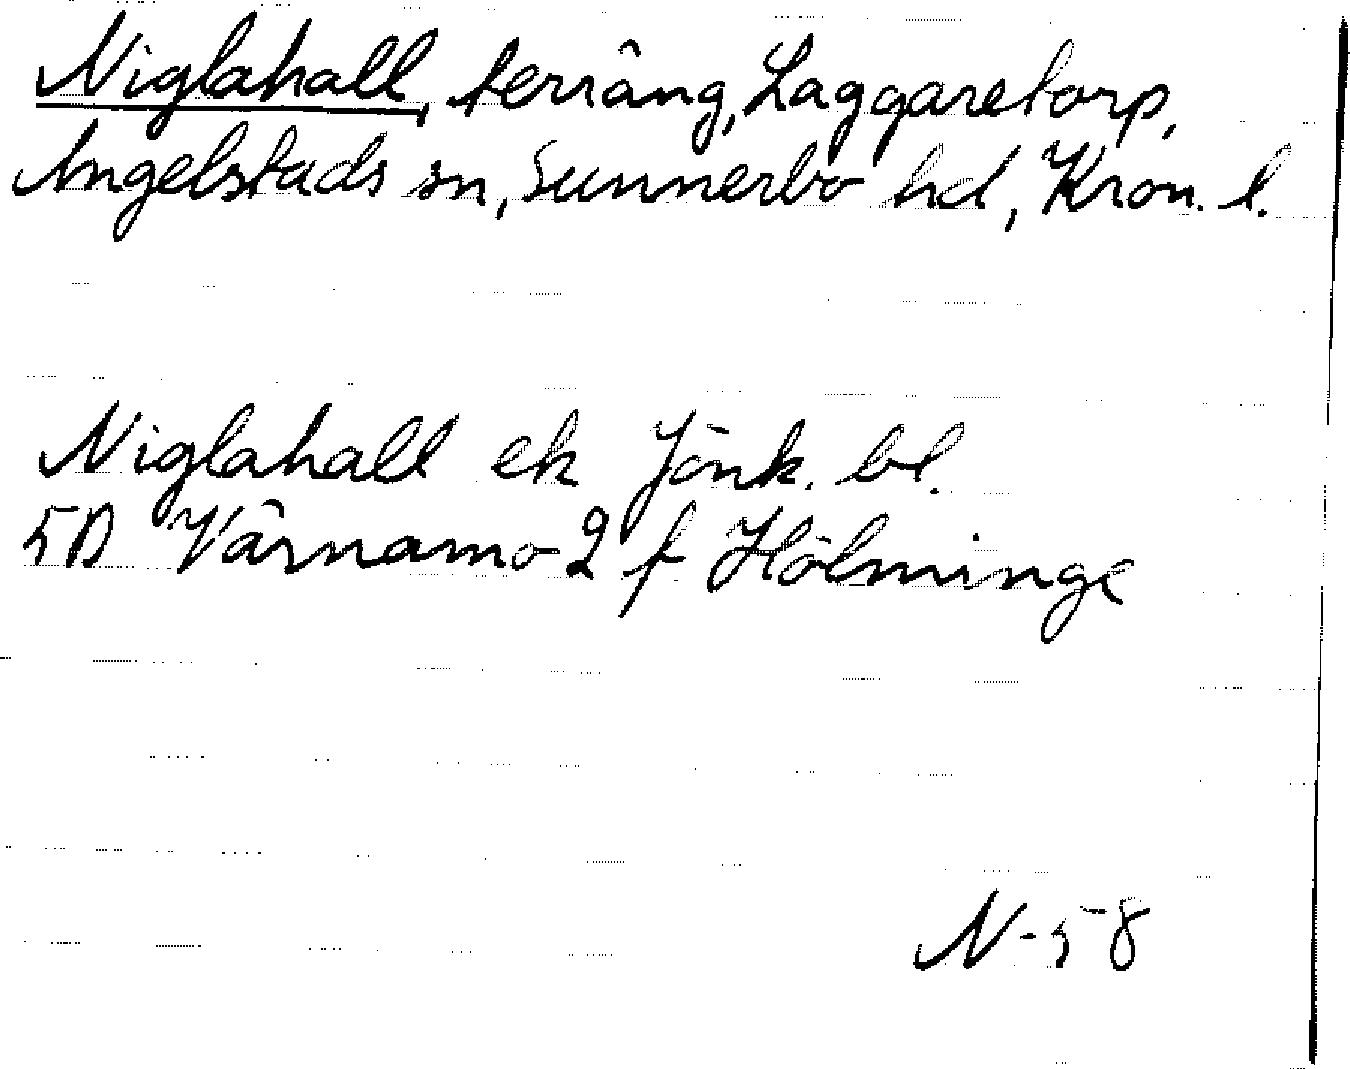 Niglahall, terräng, Laggaretorp,
Angelstads sn, Sunnerbo hd, Kron. l.
Niglahall ek Jönk. bl.
5D Värnamo 2 f Hölminge
N-58